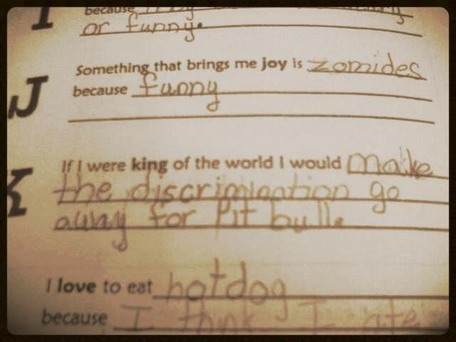 I
because
or funny.
J
Something that brings me joy is zomides
because funny
K
If I were king of the world I would make
the discrimiantion go
away for Pit bulls
I love to eat hotdog
because I think I ate